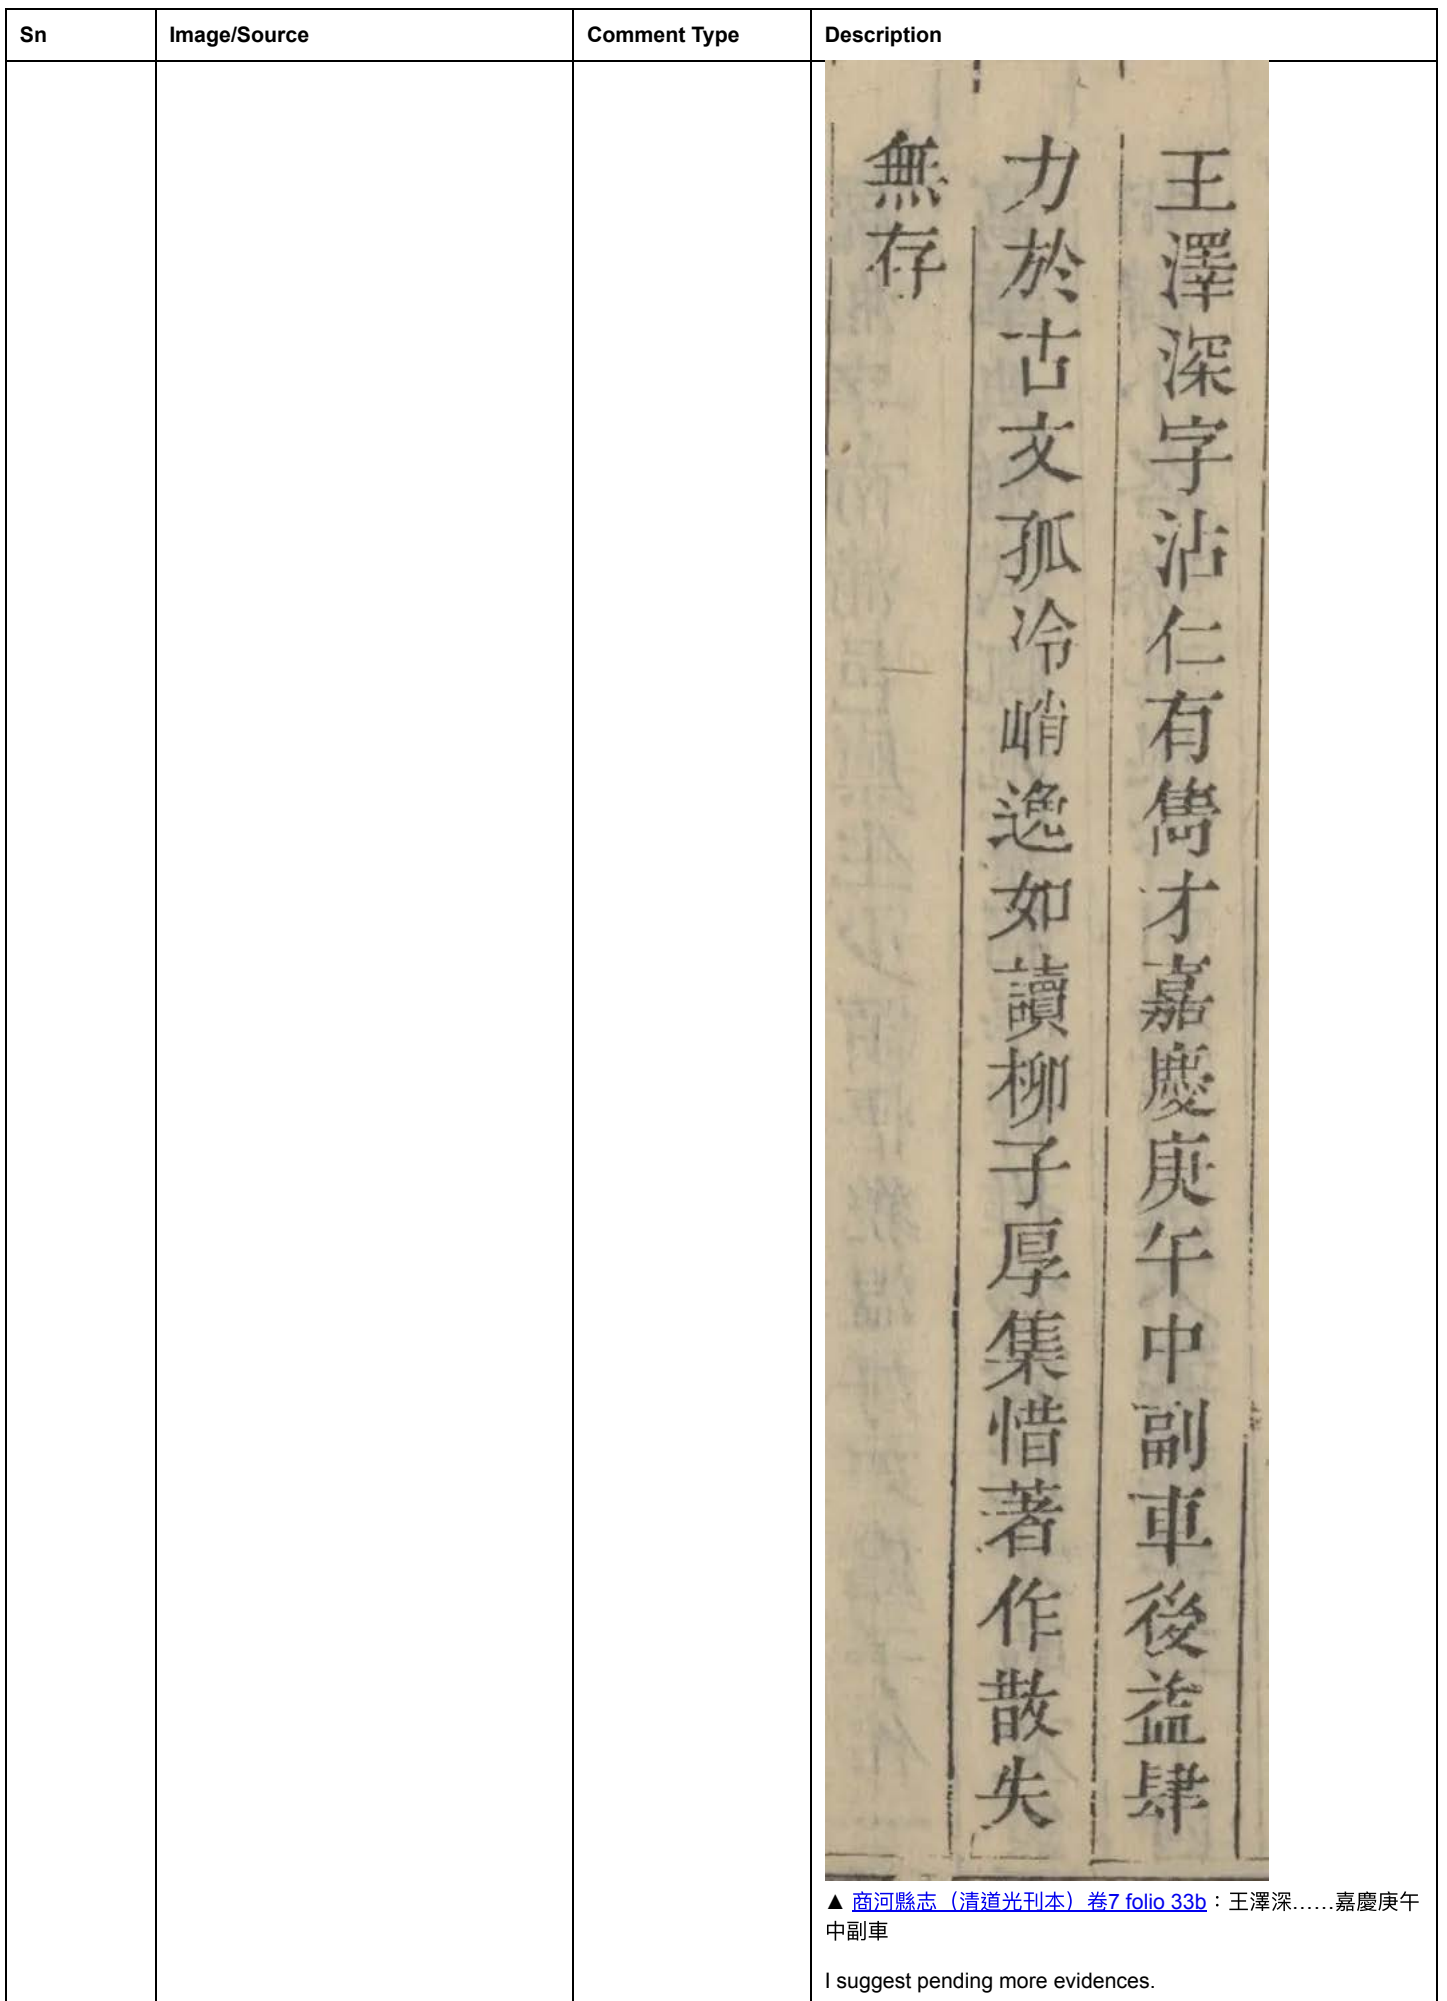 Sn Image/Source Comment Type Description
王澤深字沾仁有雋才嘉慶庚午中副車後益肆
力於古文孤冷峭逸如讀柳子厚集惜著作散失
無存
▲ 商河縣志（清道光刊本）卷7 folio 33b：王澤深……嘉慶庚午
中副車
I suggest pending more evidences.